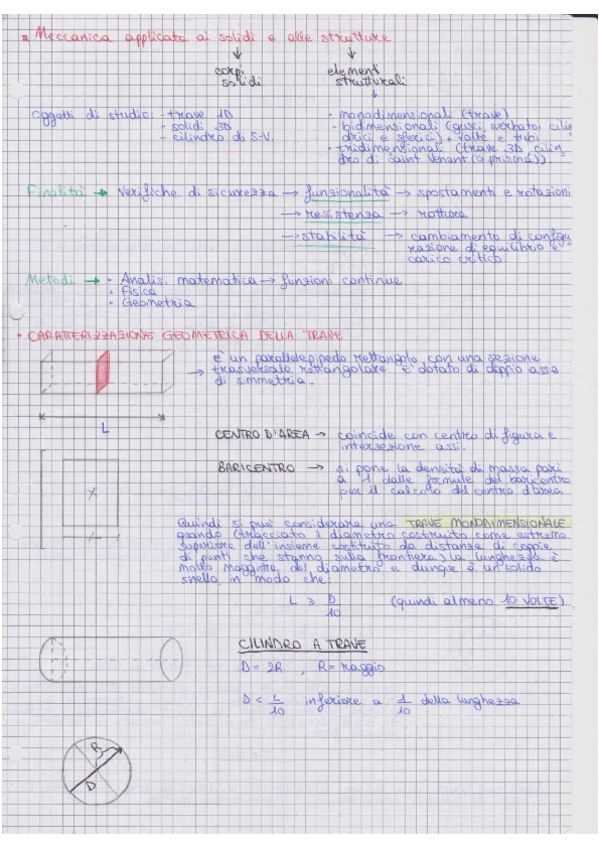 Meccanica applicata ai solidi e alle strutture
corpi solidi
elementi strutturali
oggetti di studio: - trave 1D
- solidi 3D
- cilindro di S-V.
- monodimensionali (trave)
- bidimensionali (gusci, serbatoi cilin
drici e sferici), volte e tubi
- tridimensionali (trave 3D, cilin=
dro di Saint Venant (o prisma)).
Finalità → verifiche di sicurezza → funzionalità → spostamenti e rotazioni
→ resistenza → rottura
→ stabilità → cambiamento di configu
razione di equilibrio e
carico critico
Metodi → • Analisi matematica → funzioni continue
• Fisica
• Geometria
• CARATTERIZZAZIONE GEOMETRICA DELLA TRAVE
→ è un parallelepipedo rettangolo con una sezione
trasversale rettangolare è dotato di doppio asse
di simmetria.
L
CENTRO D'AREA → coincide con centro di figura e
intersezione assi.
BARICENTRO → si pone la densità di massa pari
a 1 dalle formule del baricentro
per il calcolo del centro d'area
Quindi si può considerare una TRAVE MONODIMENSIONALE
quando (tracciato 1 diametro costruito come estremo
superiore dell'insieme costituito da distanze di coppie
di punti che stanno sulla frontiera) la lunghezza è
molto maggiore del diametro e dunque è un solido
snello in modo che:
L ≥ D/10 (quindi almeno 10 VOLTE)
CILINDRO A TRAVE
D = 2R , R = raggio
D < L/10 inferiore a 1/10 della lunghezza
R
D